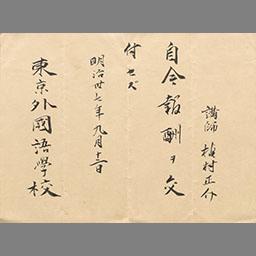 講師 植村正久
自今報酬ヲ交
付セズ
明治卅七年九月十二日
東京外國語學校